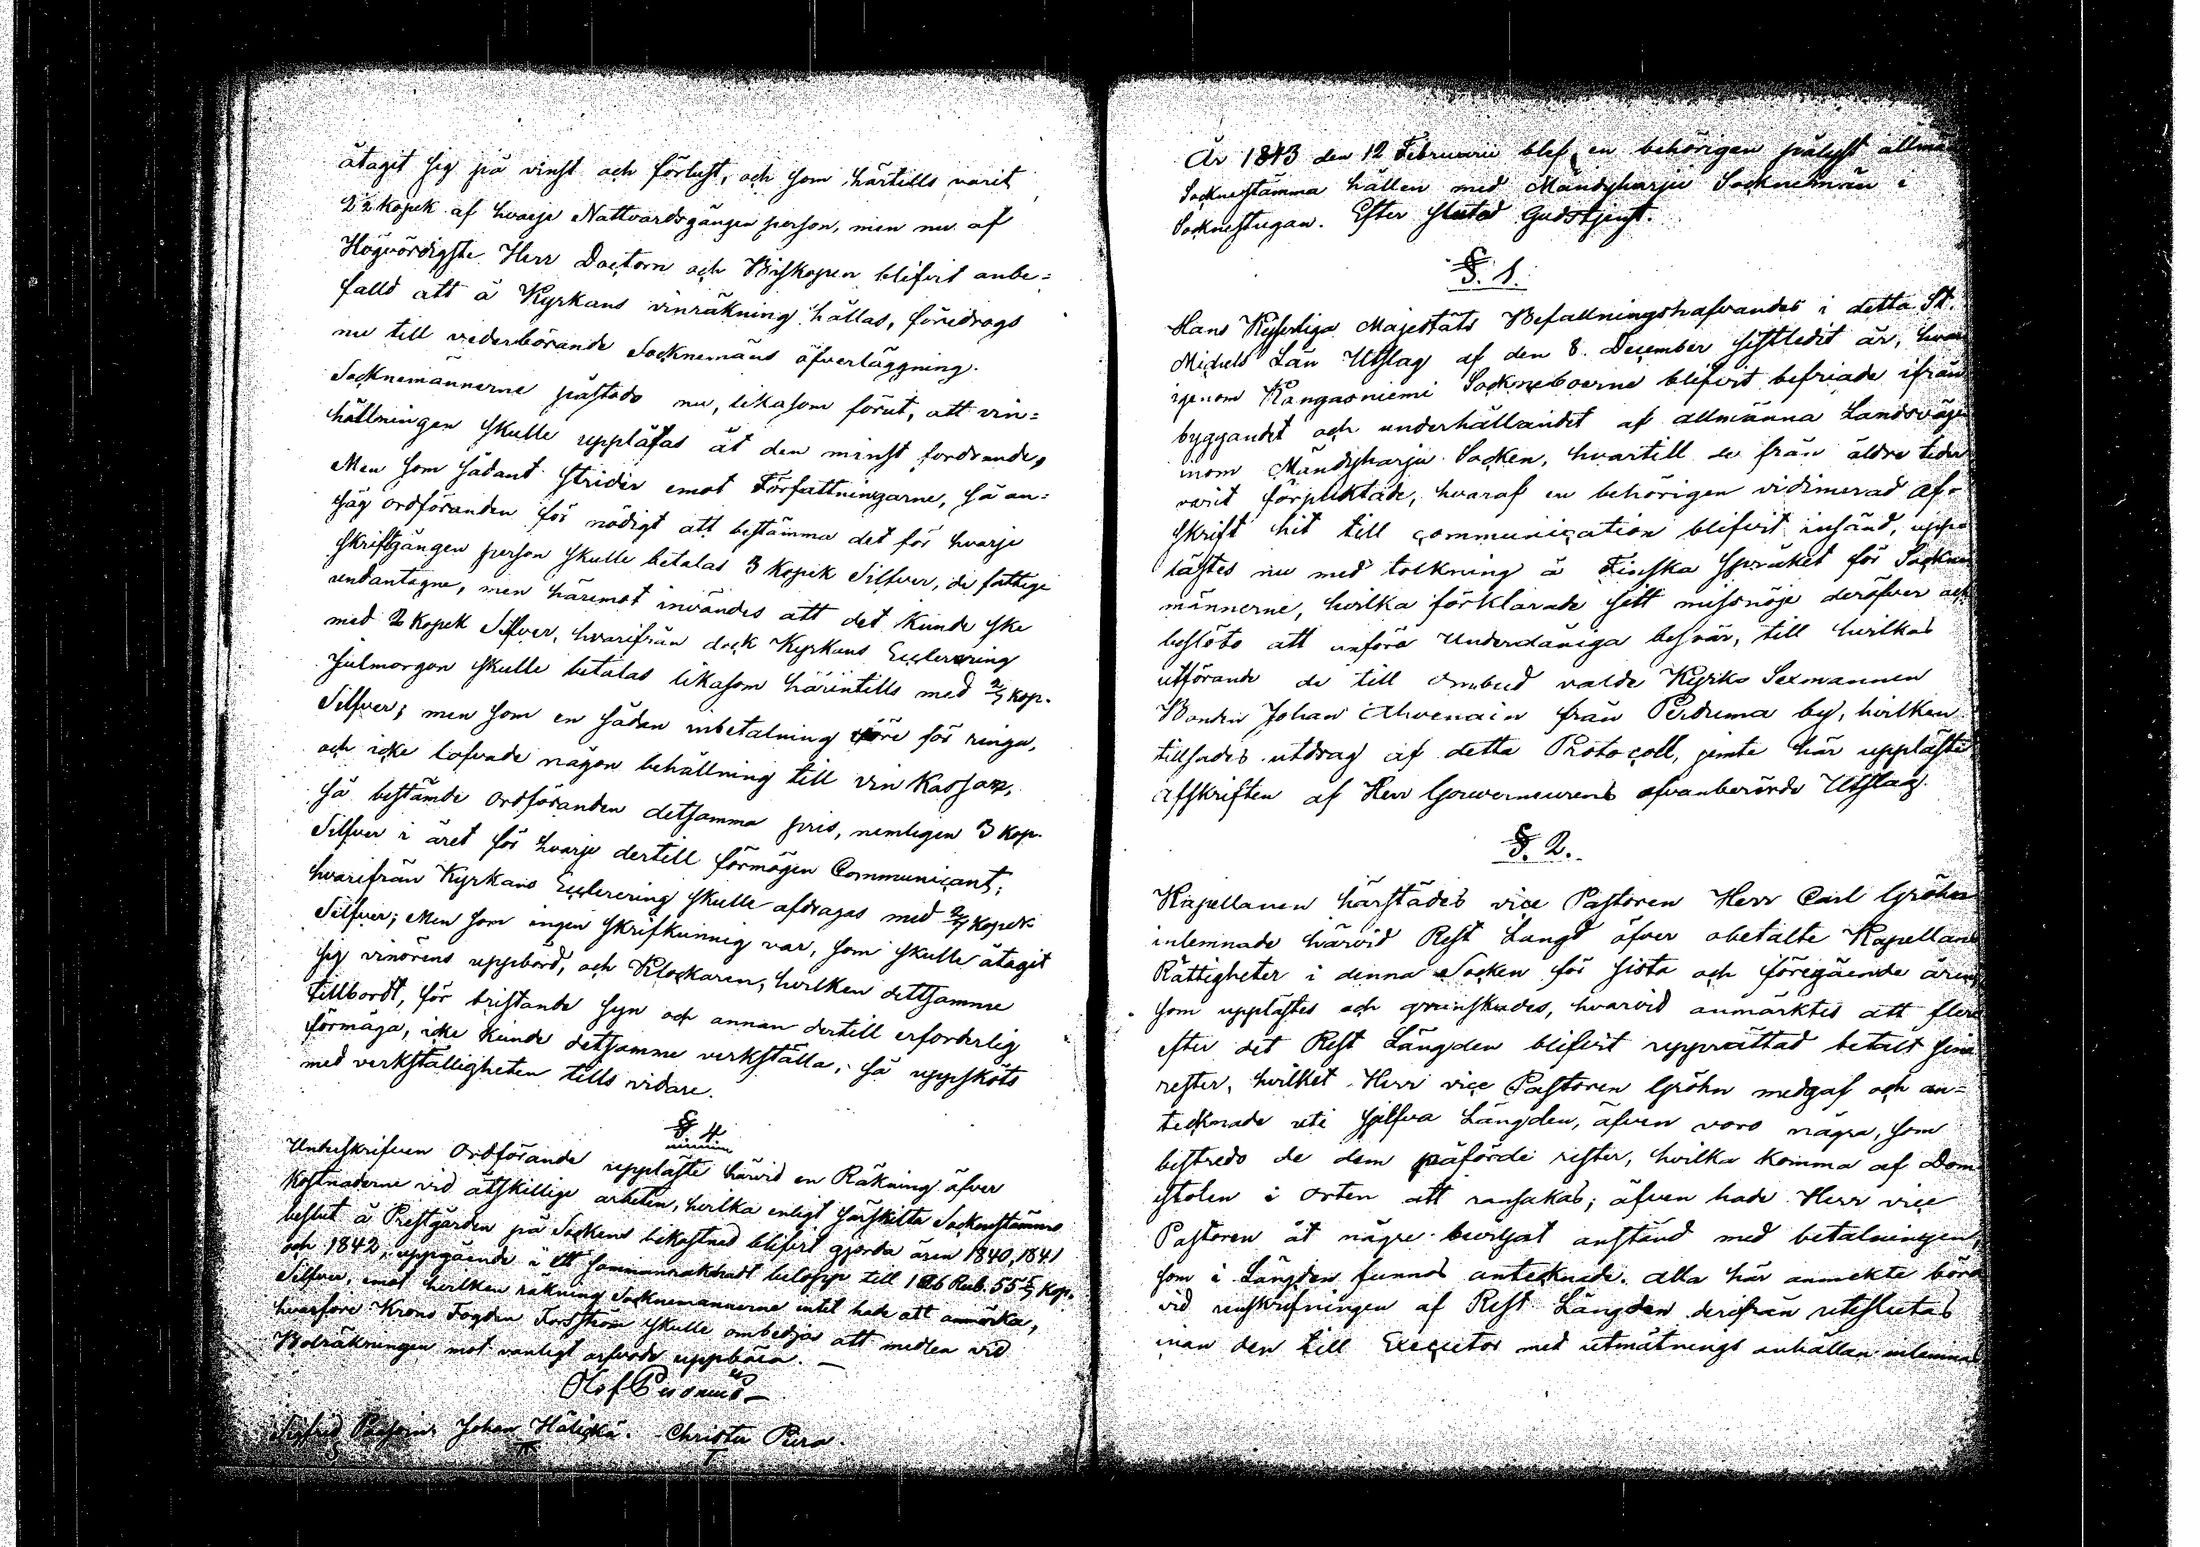 åtagit sig på vinst och förlust, och som härtills varit
2½ kopek af hvarje Nattvardsgången person, men nu af
Högvördigste Herr Doctorn och Biskopen blifvit anbe=
falld att å Kyrkans vinräkning hållas, föredrogs
nu till vederbörande Socknemäns öfverläggning.
Socknemännerne påstodo nu, likasom förut, att vin=
hållningen skulle upplåtas åt den minst fordrande,
Men som sådant strider emot Författningarne, så an=
såg ordföranden för nödigt att bestämma det för hvarje
skriftgången person skulle betalas 3 kopek Silfver, de fattige
undantagne, men häremot invändes att det kunde ske
med 2 kopek Silfver, hvarifrån dock Kyrkans Eclerering
Julmorgon skulle betalas likasom härintills med 2/7 kop.
Silfver; men som en sådan inbetalning vore för ringa,
och icke lofvade någon behållning till vin Kassan,
så bestämde ordföranden detsamma pris, nemligen 3 kop.
Silfver i året för hvarje dertill förmögen Communicant;
hvarifrån Kyrkans Eclerering skulle afdragas med 2/7 kopek
Silfver; Men som ingen skrifkunnig var, som skulle åtagit
sig vinörens uppbörd, och Klockaren, hvilken dettsamme
tillbordt, för bristande syn och annan dertill erforderlig
förmåga, icke kunde detsamme verkställa, så uppsköts
med verkställigheten tills vidare.
§ 4
Underskrifven Ordförande uppläste härvid en Räkning öfver
kostnaderne vid åtskillige arbeten, hvilka enligt särskilta Sockenstämmo
beslut å Prestgården på Sockens bekostnad blifvit gjorda åren 1840, 1841
och 1842, uppgående i ett sammanräknadt belopp till Rub. 55 kop.
Silfver, emot hvilken räkning Socknemännerne intet hade att anmärka,
hvarföre Krono Fogden Forsström skulle ombedjas att medlen vid
Bolräkningen mot vanligt arfvode uppbära. —
Olof
Sigfrid Johan Christer
År 1843 den 12 Februarii blef en behörigen pålyst allmän
Socknestämma hållen med Mändyharju Socknemän i
Socknestugan. Efter slutad Gudstjenst.
§. 1.
Hans Kejserliga Majestäts Befallningshafvandes i detta St.
Michels Län Utslag af den 8. December sistledit år, hvar
igenom Kangasniemi Sockneboerne blifvit befriade ifrån
byggandet och underhållandet af allmänna Landsvägen
inom Mändyharju Socken, hvartill de från äldre tider
varit förpliktade, hvaraf en behörigen vidimerad af=
skrift hit till communication blifvit insänd, upp=
lästes nu med tolkning å Finska språket för Sockne
männerne, hvilka förklarade sitt missnöje deröfver och
beslöto att anföra Underdåniga besvär, till hvilkas
utförande de till ombud valde Kyrko Sexmannen
Bonden Johan Ahvenain från Perduma by, hvilken
tillsades utdrag af detta Protocoll, jemte här uppläste
afskriften af Herr Gouverneurens ofvanberörde Utslag.
§. 2.
Kapellanen härstädes vice Pastoren Herr Carl Gröhn
inlemnade härvid Rest Längd öfver obetalte Kapellans
Rättigheter i denna Socken för sista och föregående åren,
som upplästes och granskades, hvarvid anmärktes att flere
efter det Rest Längden blifvit upprättad betalt sina
rester, hvilket Herr vice Pastoren Gröhn medgaf och an=
tecknade uti sjelfva Längden, äfven voro några, som
bestredo de dem påförde rester, hvilka komma af Dom
stolen i orten att ransakas; äfven hade Herr vice
Pastoren åt någre beviljat anstånd med betalningen,
som i Längden funnos antecknade. alla här anmerkte böra
vid renskrifningen af Rest Längden derifrån uteslutas
inan den till Executor med utmätnings anhållan inlemnas